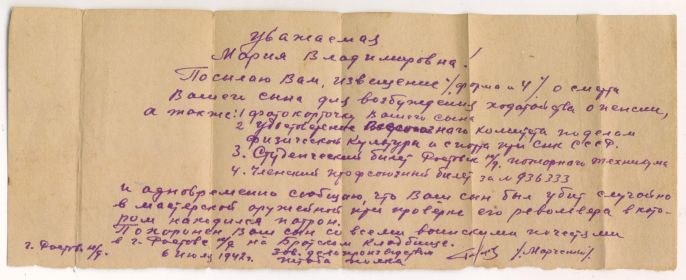 Уважаемая
Мария Владимировна!
Посылаю Вам, извещение "/форма №4"/ о смерти
Вашего сына для возбуждения ходатайства о пенсии,
а также: 1 фотокарточку Вашего сына
2 Удостоверение Всесоюзного комитета по делам
физической культуры и спорта при СНК СССР.
3. Студенческий билет Ростовск н/д. пожарного техникума
4. Членский профсоюзный билет за № 936333
и одновременно сообщаю, что Ваш сын был убит случайно
в мастерской оружейной при проверке его револьвера в кото-
ром находился патрон.
Похоронен Ваш сын со всеми воинскими почестями
в г. Ростове н/д на Братском кладбище.
г. Ростов н/д. 6 июля 1942 г. зав. делопроизводством
штаба полка /Марченко/